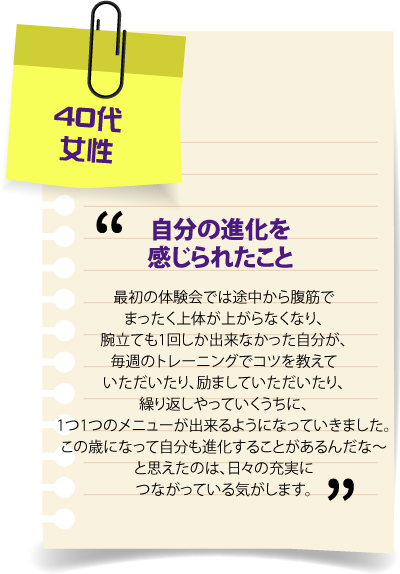 40代
女性
“
自分の進化を
感じられたこと
最初の体験会では途中から腹筋で
まったく上体が上がらなくなり、
腕立ても1回しか出来なかった自分が、
毎週のトレーニングでコツを教えて
いただいたり、励ましていただいたり、
繰り返しやっていくうちに、
1つ1つのメニューが出来るようになっていきました。
この歳になって自分も進化することがあるんだな〜
と思えたのは、日々の充実に
つながっている気がします。 ”